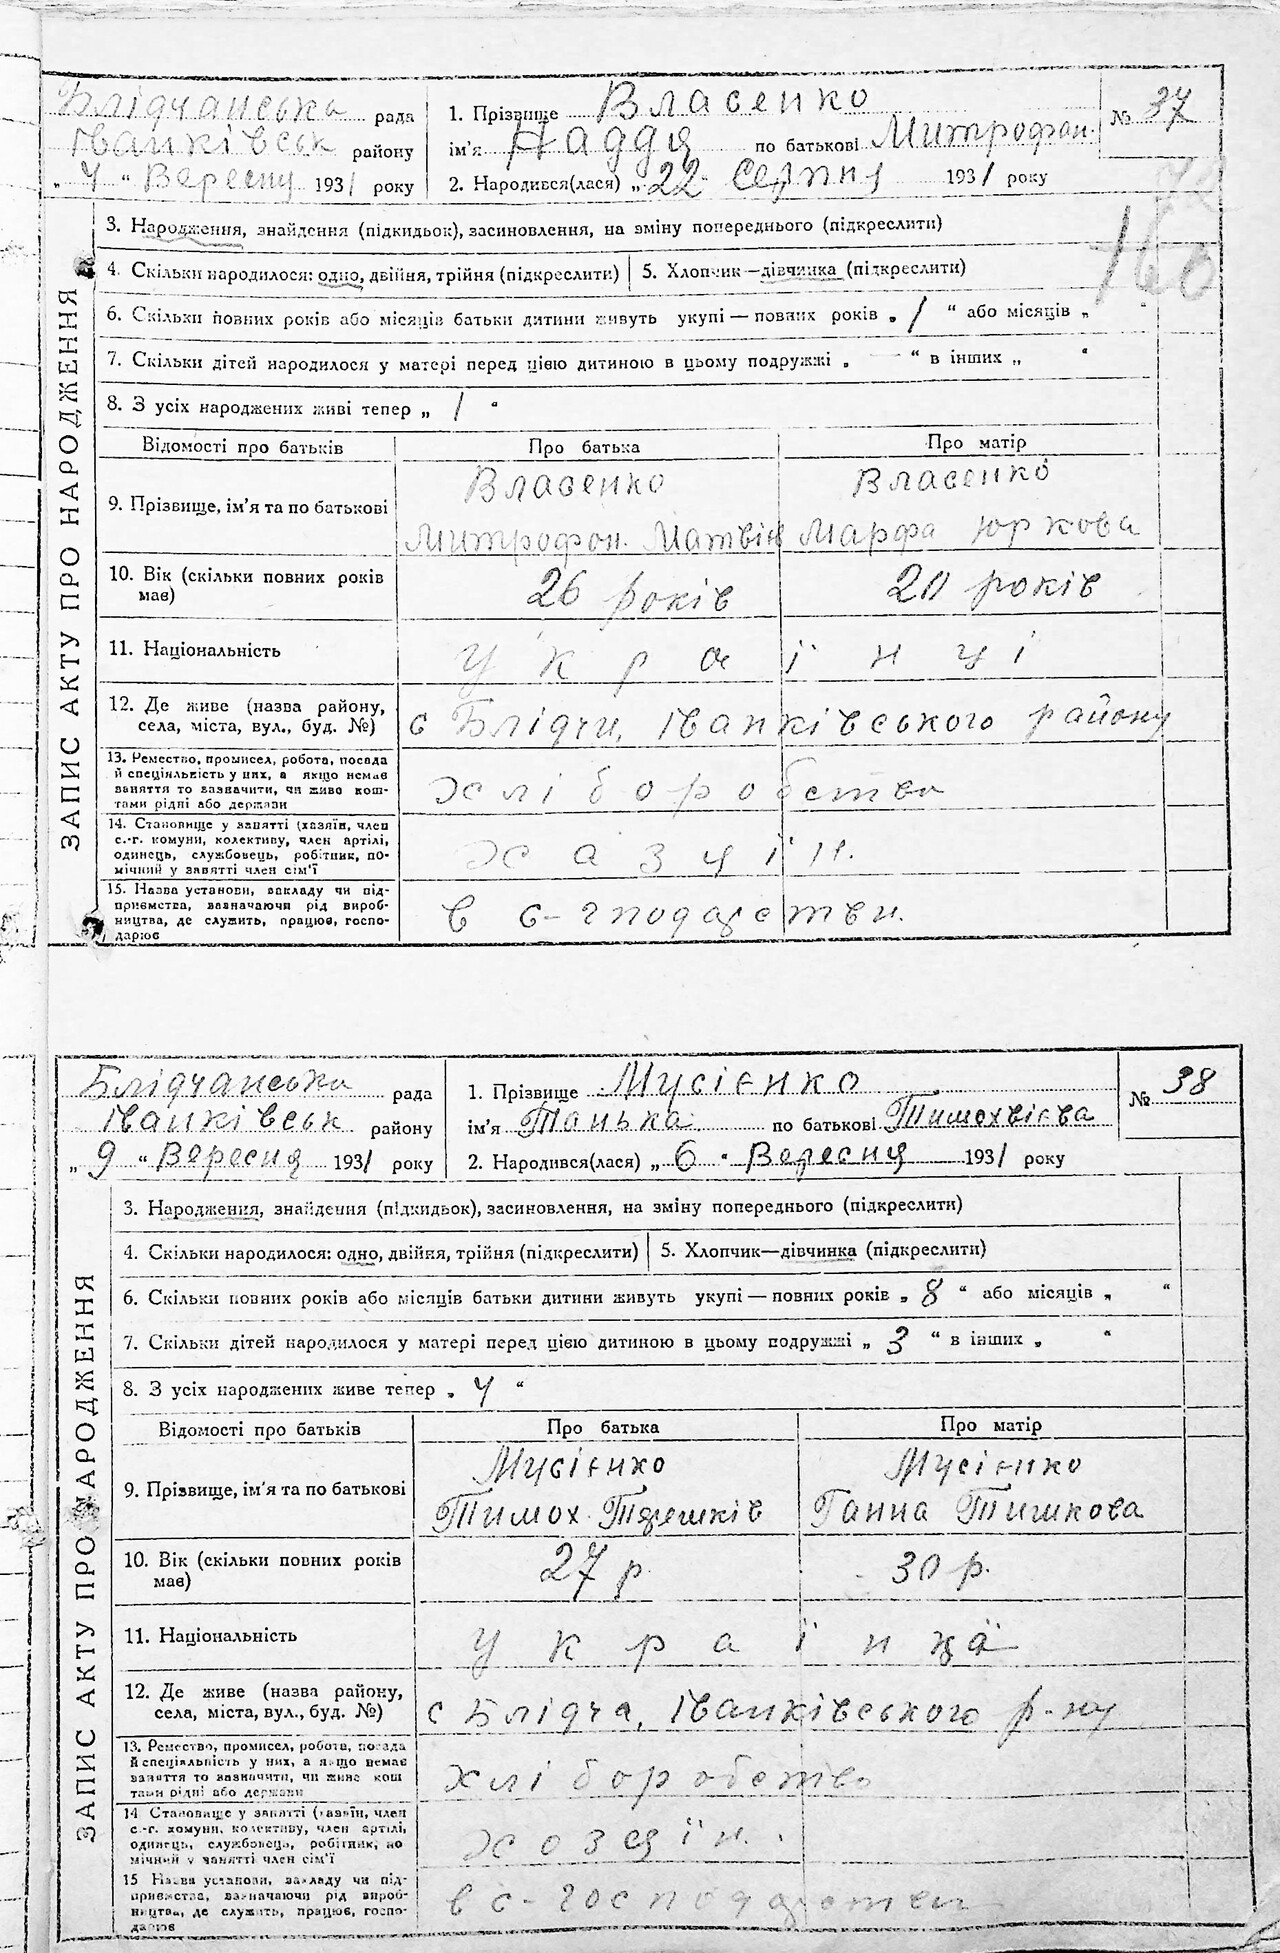 Блідчанська рада
Іванківськ району
„ 4 “ Вересну 1931 року
1. Прізвище Власенко
ім'я Наддя по батькові Митрофан.
2. Народився(лася) „ 22 Серпну 1931 року
№ 37
160
ЗАПИС АКТУ ПРО НАРОДЖЕННЯ
3. Народження, знайдення (підкидьок), засиновлення, на зміну попереднього (підкреслити)
4. Скільки народилося: одно, двійня, трійня (підкреслити) 5. Хлопчик—дівчинка (підкреслити)
6. Скільки повних років або місяців батьки дитини живуть укупі — повних років „ 1 “ або місяців „ “
7. Скільки дітей народилося у матері перед цією дитиною в цьому подружжі „ — “ в інших „ “
8. З усіх народжених живі тепер „ 1 “
Відомості про батьків Про батька Про матір
9. Прізвище, ім'я та по батькові
Власенко Власенко
Митрофон. Матвіїв Марфа Юркова
10. Вік (скільки повних років має) 26 років 20 років
11. Національність українці
12. Де живе (назва району, села, міста, вул., буд. №) с Блідчи, Іванківського району
13. Ремество, промисел, робота, посада
й спеціяльність у них, а якщо немає
заняття то зазначити, чи живе кош-
тами рідні або держави
хліборобство
14. Становище у занятті (хазяїн, член
с.-г. комуни, колективу, член артілі,
одинець, службовець, робітник, по-
мічний у занятті член сім'ї
хазяїн.
15. Назва установи, закладу чи під-
приємства, зазначаючи рід вироб-
ництва, де служить, працює, госпо-
дарює
в с-гподарстви.
Блідчанська рада
Іванківськ району
„ 9 “ Вересня 1931 року
1. Прізвище Мусієнко
ім'я Танька по батькові Тимохвієва
2. Народився(лася) „ 6 “ Вересня 1931 року
№ 38
ЗАПИС АКТУ ПРО НАРОДЖЕННЯ
3. Народження, знайдення (підкидьок), засиновлення, на зміну попереднього (підкреслити)
4. Скільки народилося: одно, двійня, трійня (підкреслити) 5. Хлопчик—дівчинка (підкреслити)
6. Скільки повних років або місяців батьки дитини живуть укупі — повних років „ 8 “ або місяців „ “
7. Скільки дітей народилося у матері перед цією дитиною в цьому подружжі „ 3 “ в інших „ “
8. З усіх народжених живе тепер „ 4 “
Відомості про батьків Про батька Про матір
9. Прізвище, ім'я та по батькові
Мусієнко Мусієнко
Тимох Терешків Ганна Тишкова
10. Вік (скільки повних років має) 27 р. 30 р.
11. Національність україн
12. Де живе (назва району, села, міста, вул., буд. №) с Блідча, Іванківського р-ну
13. Ремество, промисел, робота, посада
й спеціяльність у них, а якщо немає
заняття то зазначити, чи живе кош
тами рідні або держави
хліборобство
14 Становище у занятті (хазяїн, член
с.-г. комуни, колективу, член артілі,
одинець, службовець, робітник, по
мічний у занятті член сім'ї
хозяїн.
15 Назва установи, закладу чи під-
приємства, зазначаючи рід вироб-
ництва, де служить, працює, госпо-
дарює
в с-господарстви